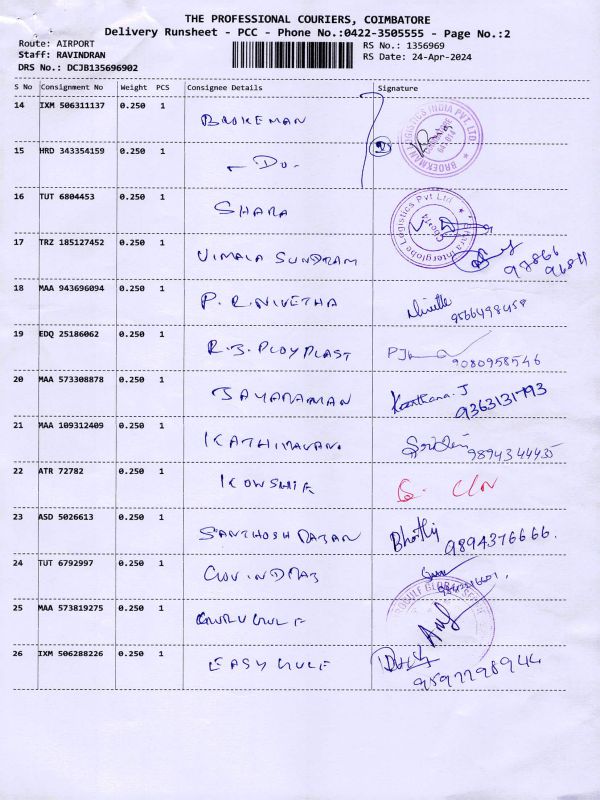 THE PROFESSIONAL COURIERS, COIMBATORE
Delivery Runsheet - PCC - Phone No.:0422-3505555 - Page No.:2
Route: AIRPORT
RS No.: 1356969
Staff: RAVINDRAN
RS Date: 24-Apr-2024
DRS No.: DCJB135696902
S No Consignment No Weight PCS Consignee Details Signature
14 IXM 506311137 0.250 1 BROKEMAN
BROEKMAN LOGISTICS INDIA PVT LTD.
15 HRD 343354159 0.250 1 - Do -
16 TUT 6804453 0.250 1 SHARA
Sahara Interglobe Logistics Pvt Ltd
17 TRZ 185127452 0.250 1 VIMALA SUNDRAM 97866 96811
18 MAA 943696094 0.250 1 P. R. NIVETHA Nivetha 9566498458
19 EDQ 25186062 0.250 1 R.J. PLOYPLAST 9080958546
20 MAA 573308878 0.250 1 JAYARAMAN Keerthana. J 9363131793
21 MAA 109312409 0.250 1 KATHIRAVAN. 9894344435
22 ATR 72782 0.250 1 KOWSHIK
23 ASD 5026613 0.250 1 SANTHOSH RAJAN 9894376666.
24 TUT 6792997 0.250 1 GOVINDRAJ
25 MAA 573819275 0.250 1 GURUGULF
26 IXM 506288226 0.250 1 EASYGULF 9597798944